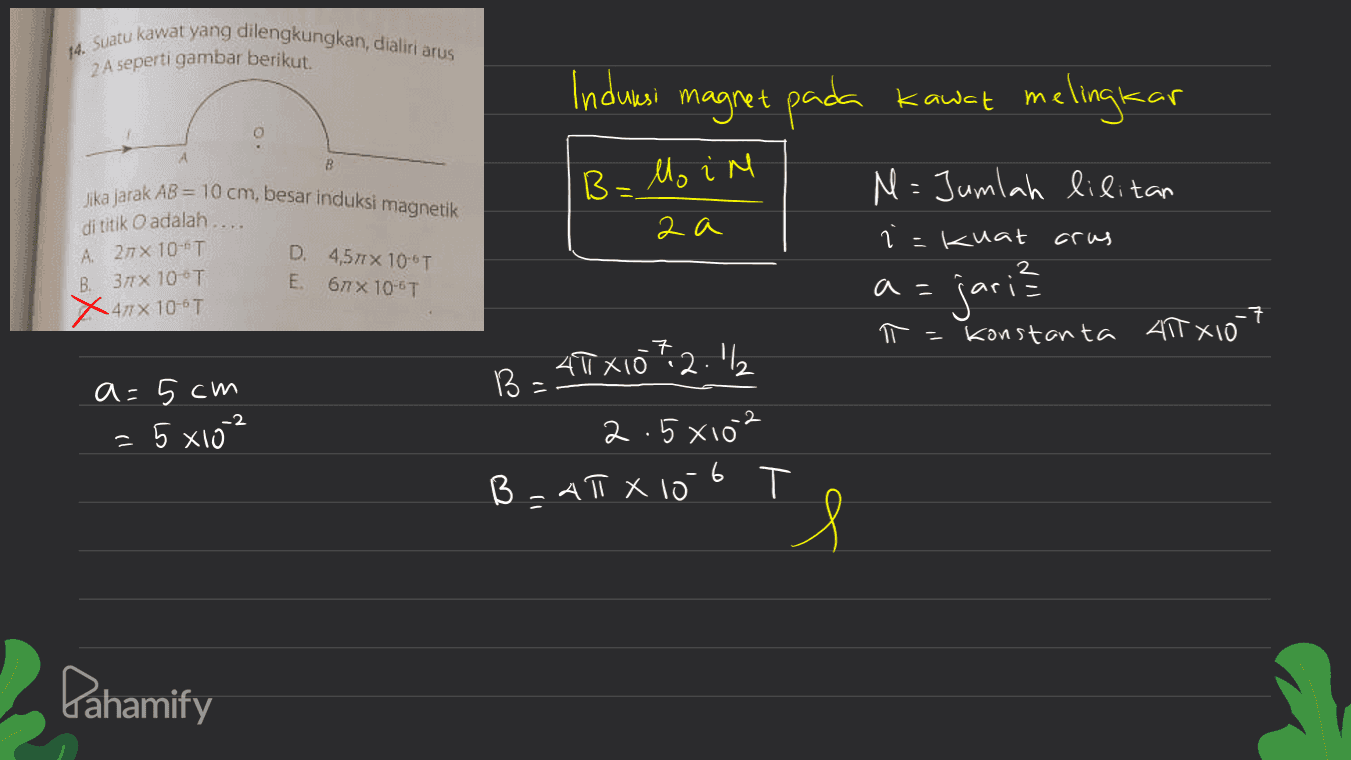 14. Suatu kawat yang dilengkungkan, dialiri arus
2 A seperti gambar berikut.
I
O
A
B
Jika jarak AB = 10 cm, besar induksi magnetik
di titik O adalah ....
A. 2π × 10⁻⁶ T
B. 3π × 10⁻⁶ T
4π × 10⁻⁶ T
D. 4,5π × 10⁻⁶ T
E. 6π × 10⁻⁶ T
Induksi magnet pada kawat melingkar
B = μ₀ i N / 2 a
N = Jumlah lilitan
i = kuat arus
a = jari²
π = konstanta 4π × 10⁻⁷
a = 5 cm
= 5 × 10⁻²
B = 4π × 10⁻⁷ . 2 . 1/2 / 2 . 5 × 10⁻²
B = 4π × 10⁻⁶ T
Pahamify